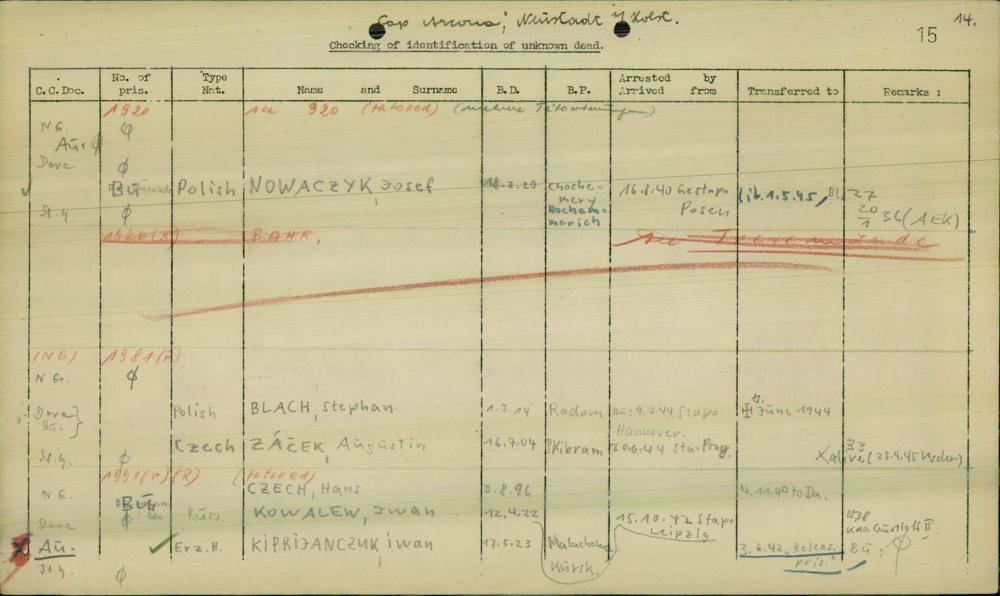 "Cap Arcona", Neustadt i/Holst.
14.
15
Checking of identification of unknown dead.
C.C.Doc. No. of pris. Type Nat. Name and Surname B.D. B.P. Arrested by Arrived from Transferred to Remarks :
1920 see 920 (tatooed) (mehrere Tätowierungen)
NG. ϕ
Au. ϕ
Dora ϕ
Bu Polish NOWACZYK, Josef 18.2.20 16.8.40 Gestapo Posen lib. 1.5.45, 27
Hochem-merich
St.h. ϕ 20/1 36 (AEK)
BAHR, see Travemünde
(NG) 1981(R)
NG. ϕ
Dora Bu. } Polish BLACH, Stephan 1.3.14 Radom 9.2.44 Stapo Hannover. June 1944
Czech ZÁČEK, Augustin 16.7.04 20.6.44 Prag. 33
St.h. ϕ alive (25.4.45
1991(r)(R) (tatooed)
NG. CZECH, Hans 3.8.96 4.11.40 to Da.
Bu Russ. KOWALEW, Iwan 12.4.22 15.10.42 Stapo Leipzig 438
Dora ϕ Gustloff II
Au. Erz.H. KIPRIJANCZUK, iwan 17.5.23 Kursk. 3.6.42 "Releas. pris." Bu.
St.h. ϕ